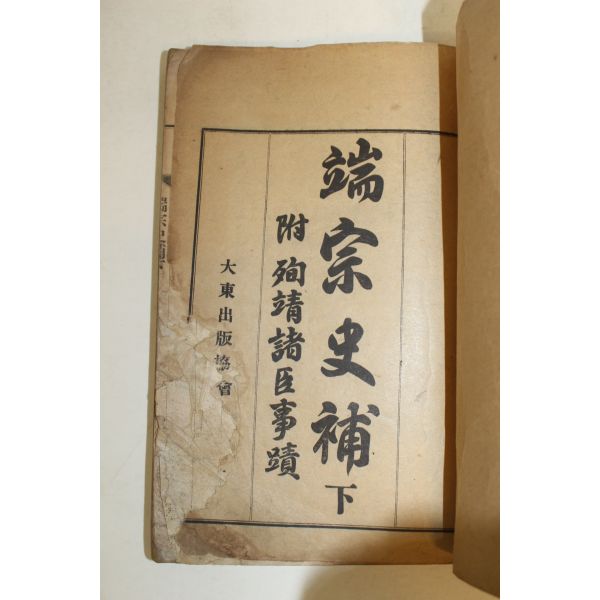 端宗史補下
附殉靖諸臣事蹟
大東出版協會